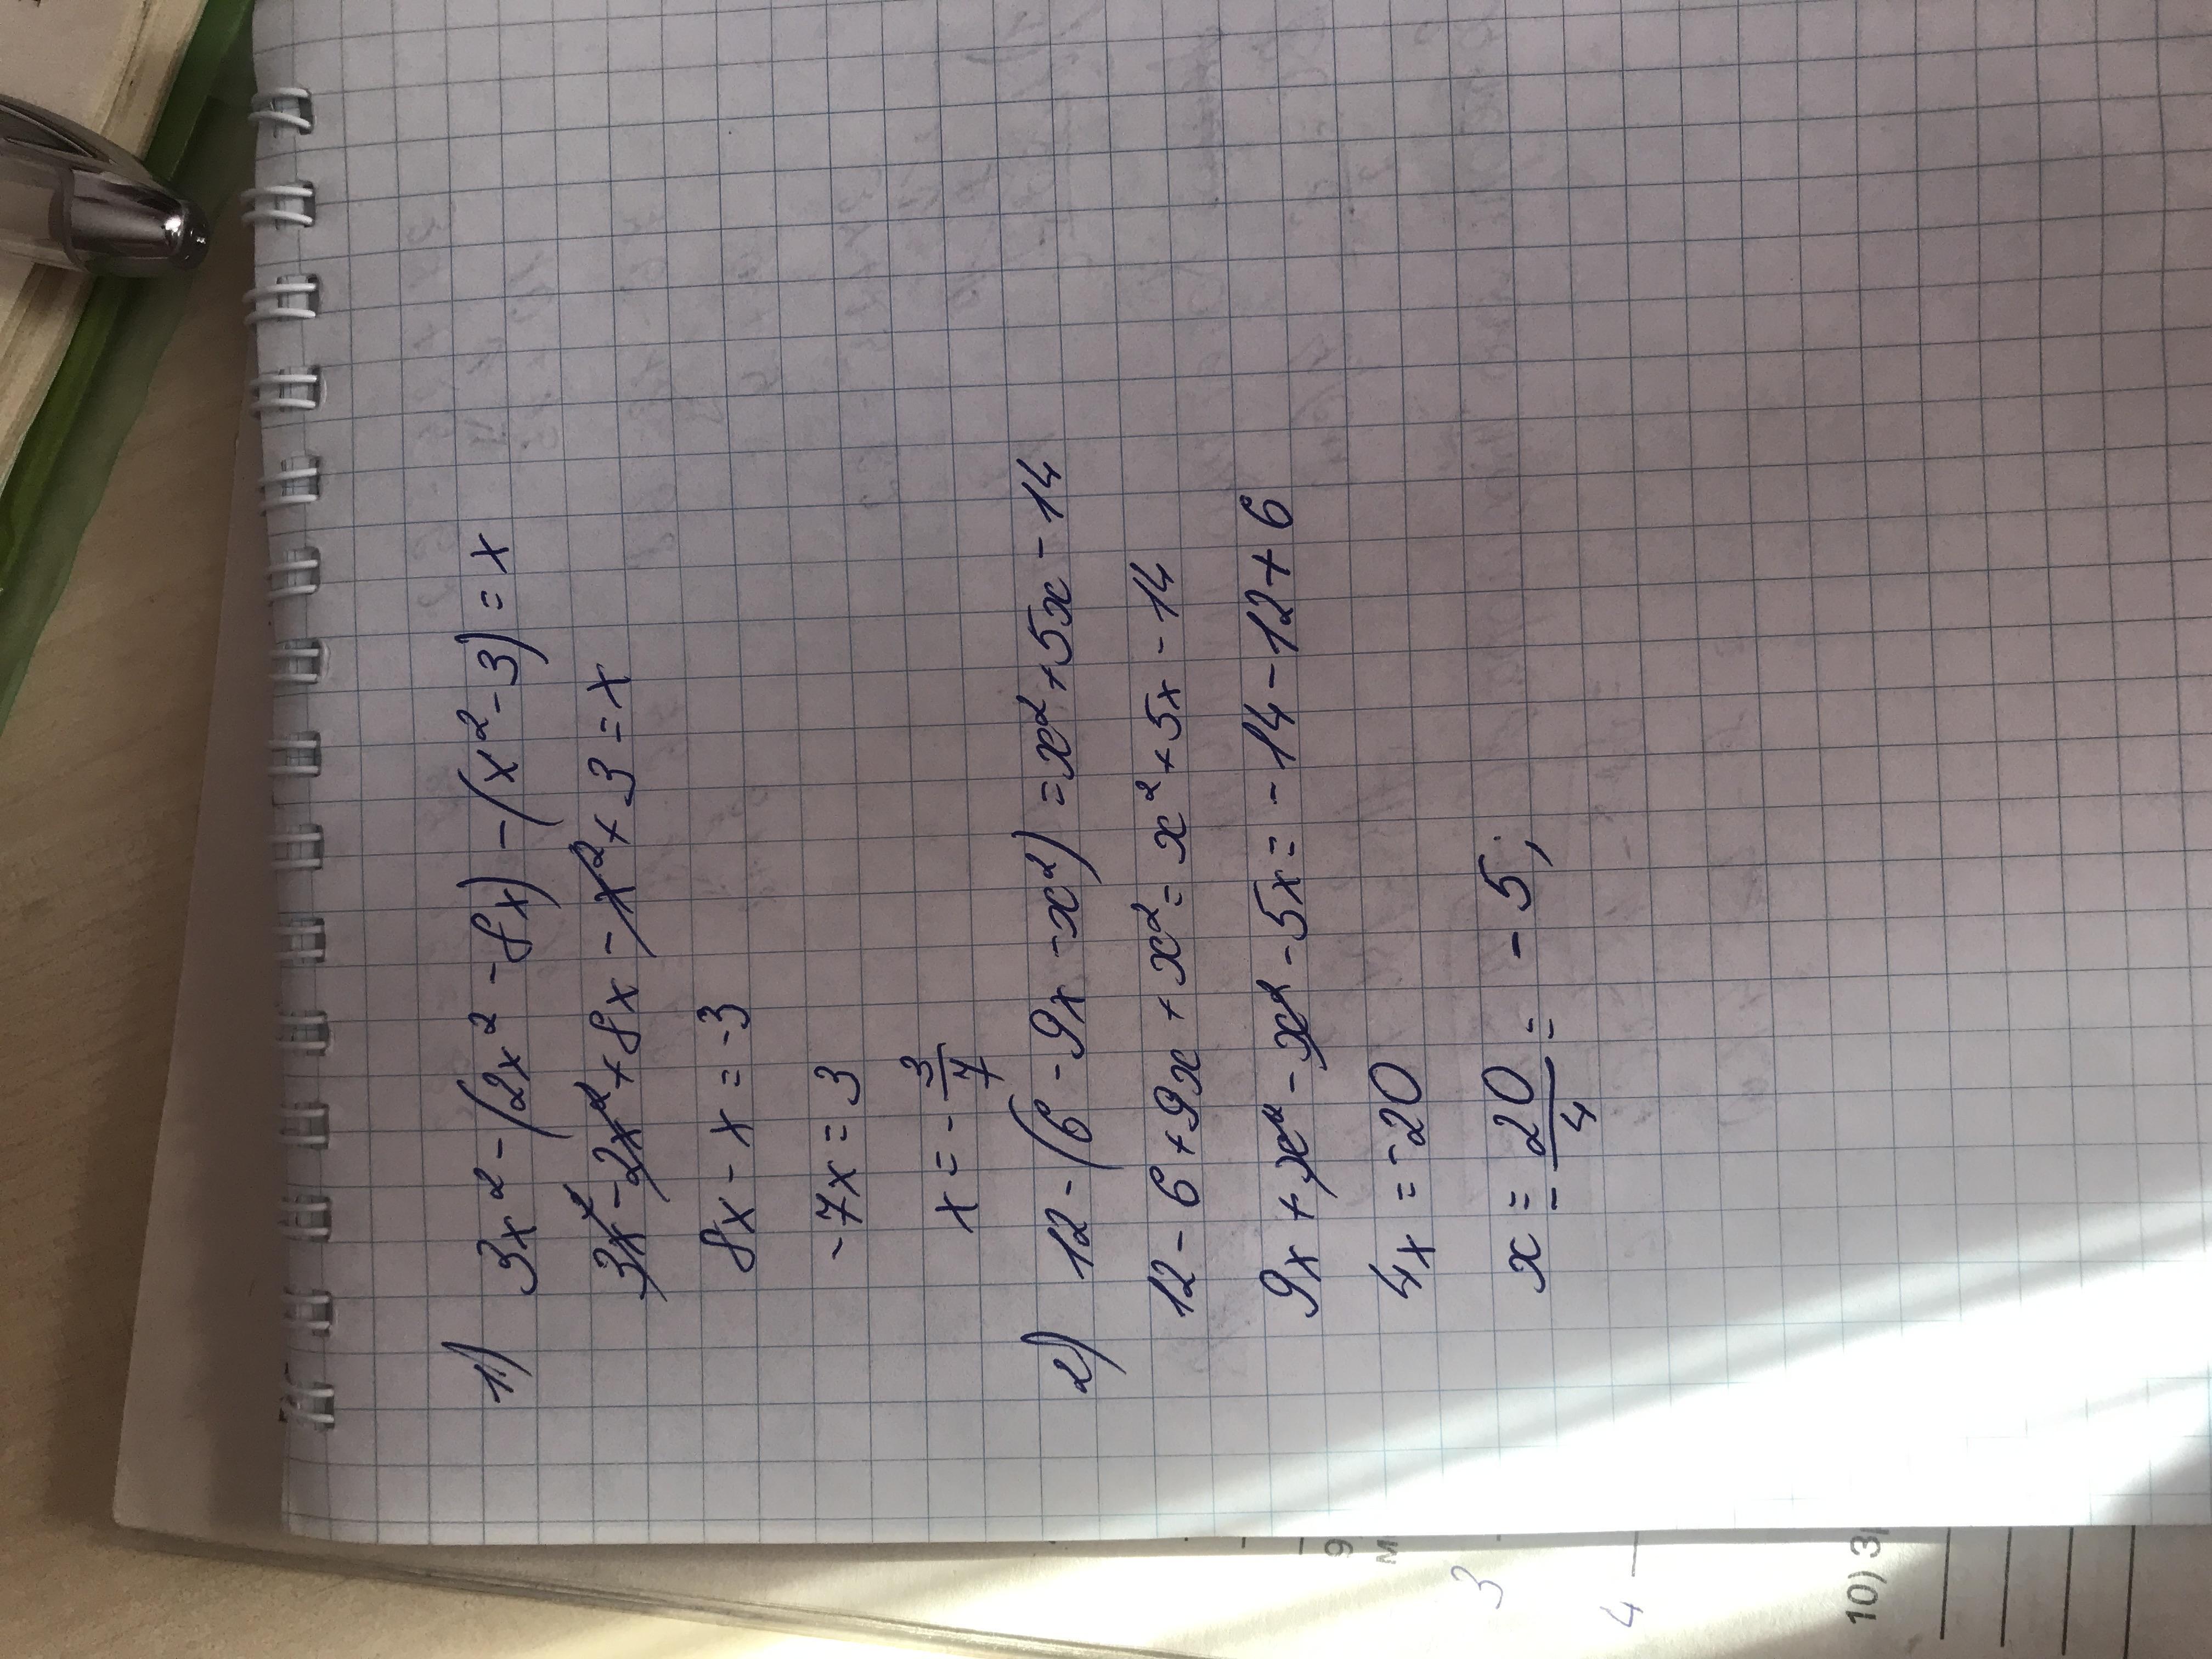 1) 3x² - (2x² - 8x) - (x² - 3) = x
3x² - 2x² + 8x - x² + 3 = x
8x - x = -3
-7x = 3
x = - 3/7
2) 12 - (6 - 9x - x²) = x² + 5x - 14
12 - 6 + 9x + x² = x² + 5x - 14
9x + x² - x² - 5x = -14 - 12 + 6
4x = -20
x = - 20/4 = -5;
9
м
3
4
10) З